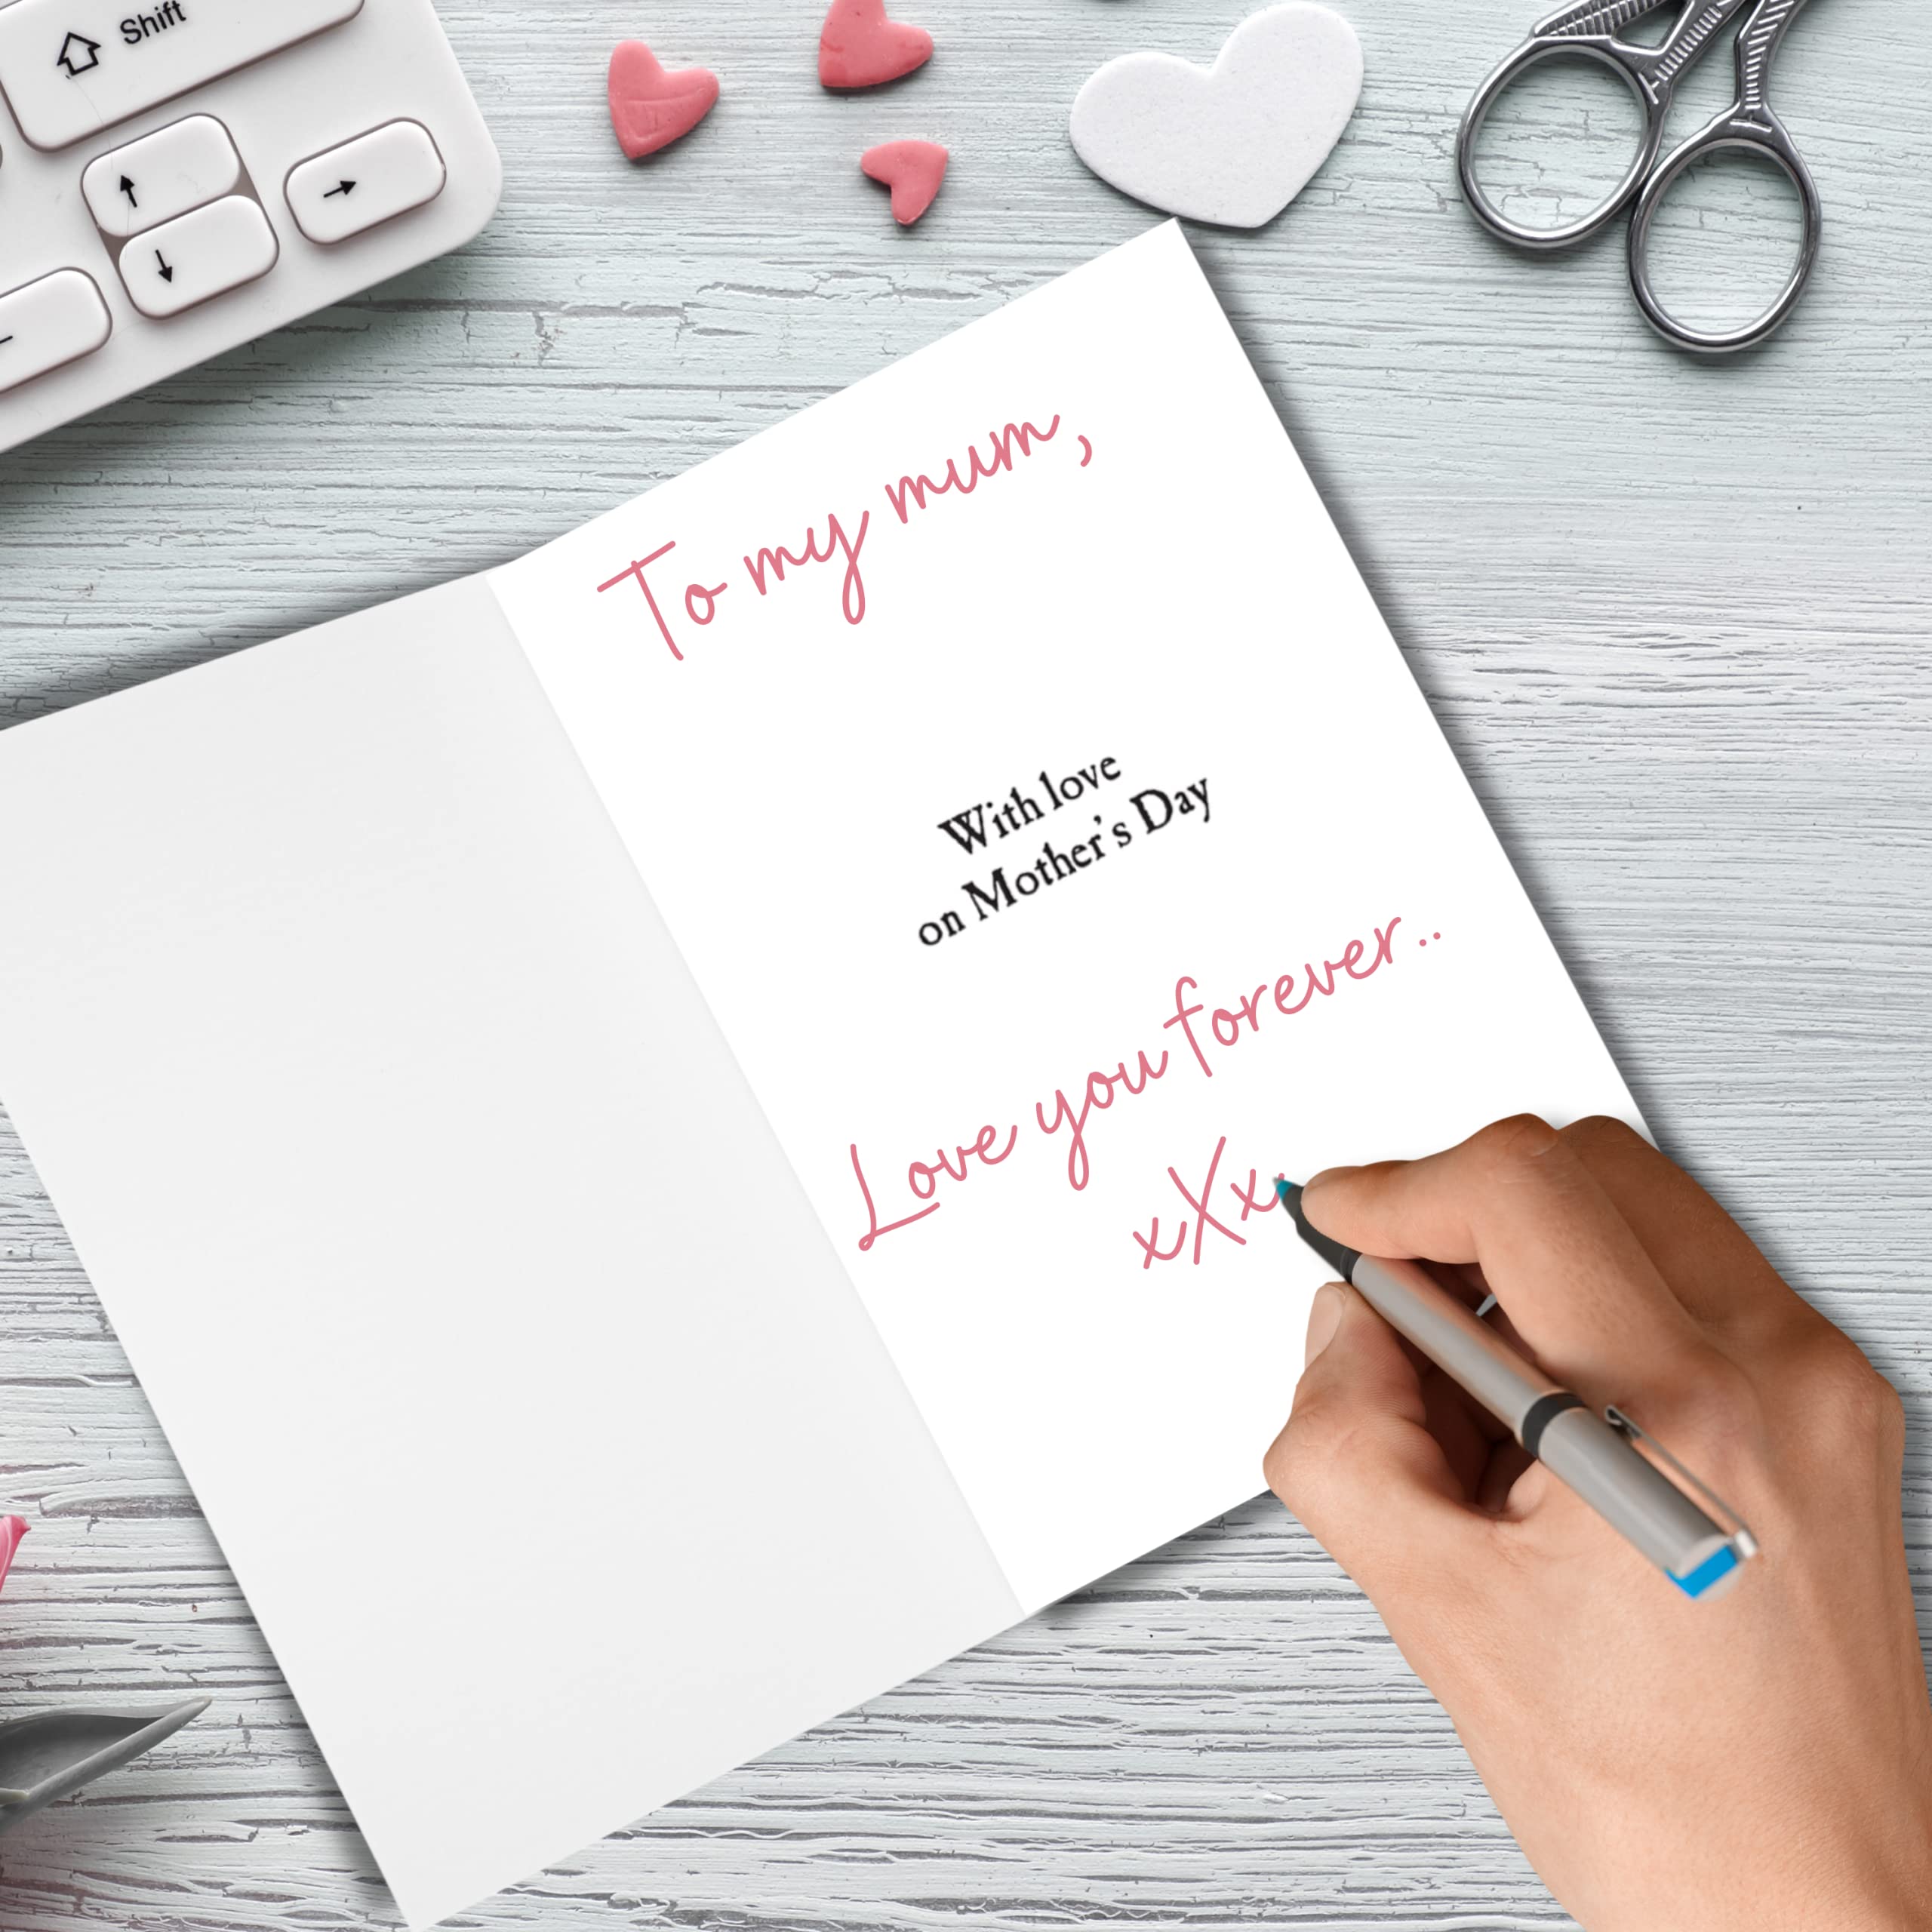 Shift
To my mum,
With love
on Mother's Day
Love you forever..
xXx.